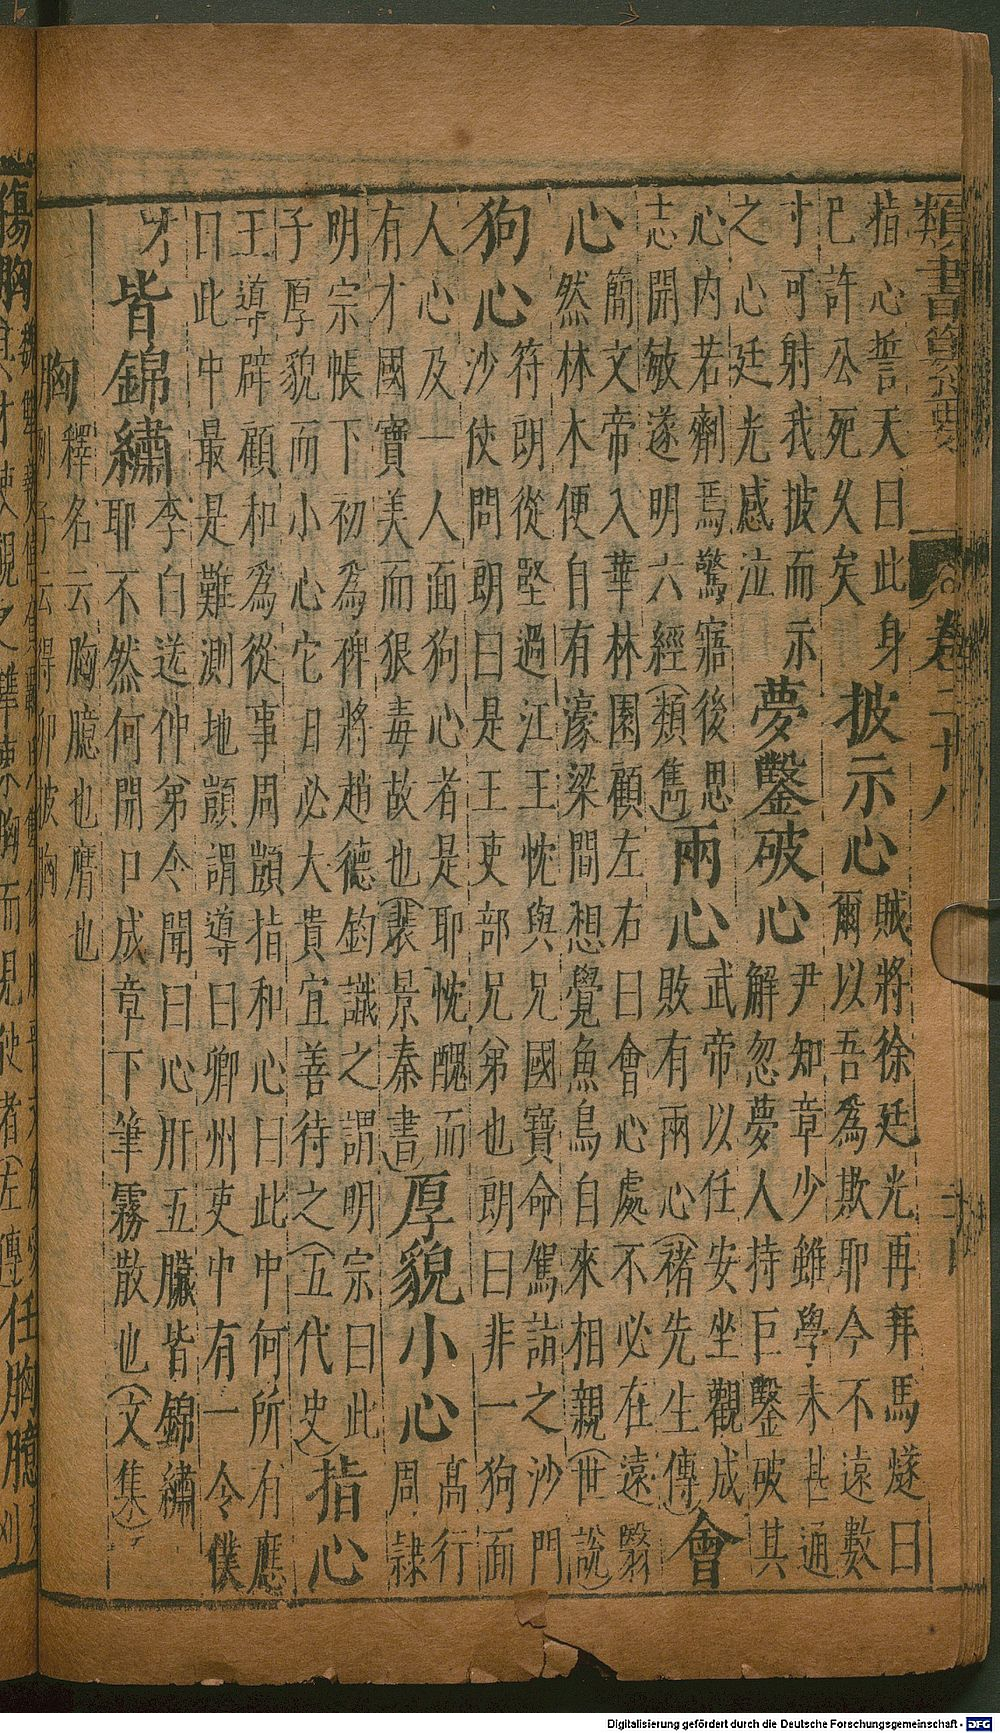 類書纂要
卷二十八
指心誓天日此身
已許公死久矣
披示心
賊將徐廷光再拜馬燧曰
爾以吾為欺耶今不遠數
寸可射我披而示
之心廷光感泣
夢鑿破心
尹知章少雖學未甚通
解忽夢人持巨鑿破其
心內若劑焉驚寤後思
志開敏遂明六經(類雋)
兩心
武帝以任安坐觀成
敗有兩心(褚先生傳)
會
心
簡文帝入華林園顧左右曰會心處不必在遠翳
然林木便自有濠梁間想覺魚鳥自來相親(世說)
狗心
符朗從堅過江王忱與兄國寶命駕詣之沙門
沙使問朗曰是王吏部兄弟也朗曰非一狗面
人心及一人面狗心者是耶忱醜而
有才國寶美而狠毒故也(裴景秦書)
厚貌小心
高行
周隸
明宗帳下初為裨將趙德鈞識之謂明宗曰此
子厚貌而小心它日必大貴宜善待之(五代史)
指心
王導辟顧和為從事周顗指和心曰此中何所有應
曰此中最是難測地顗謂導曰卿州吏中有一令僕
才
皆錦繡
李白送仲弟令聞曰心肝五臟皆錦繡
耶不然何開口成章下筆霧散也(文集)
胸
釋名云胸臆也膺也
傷胸
而見使者(左傳)
任胸臆